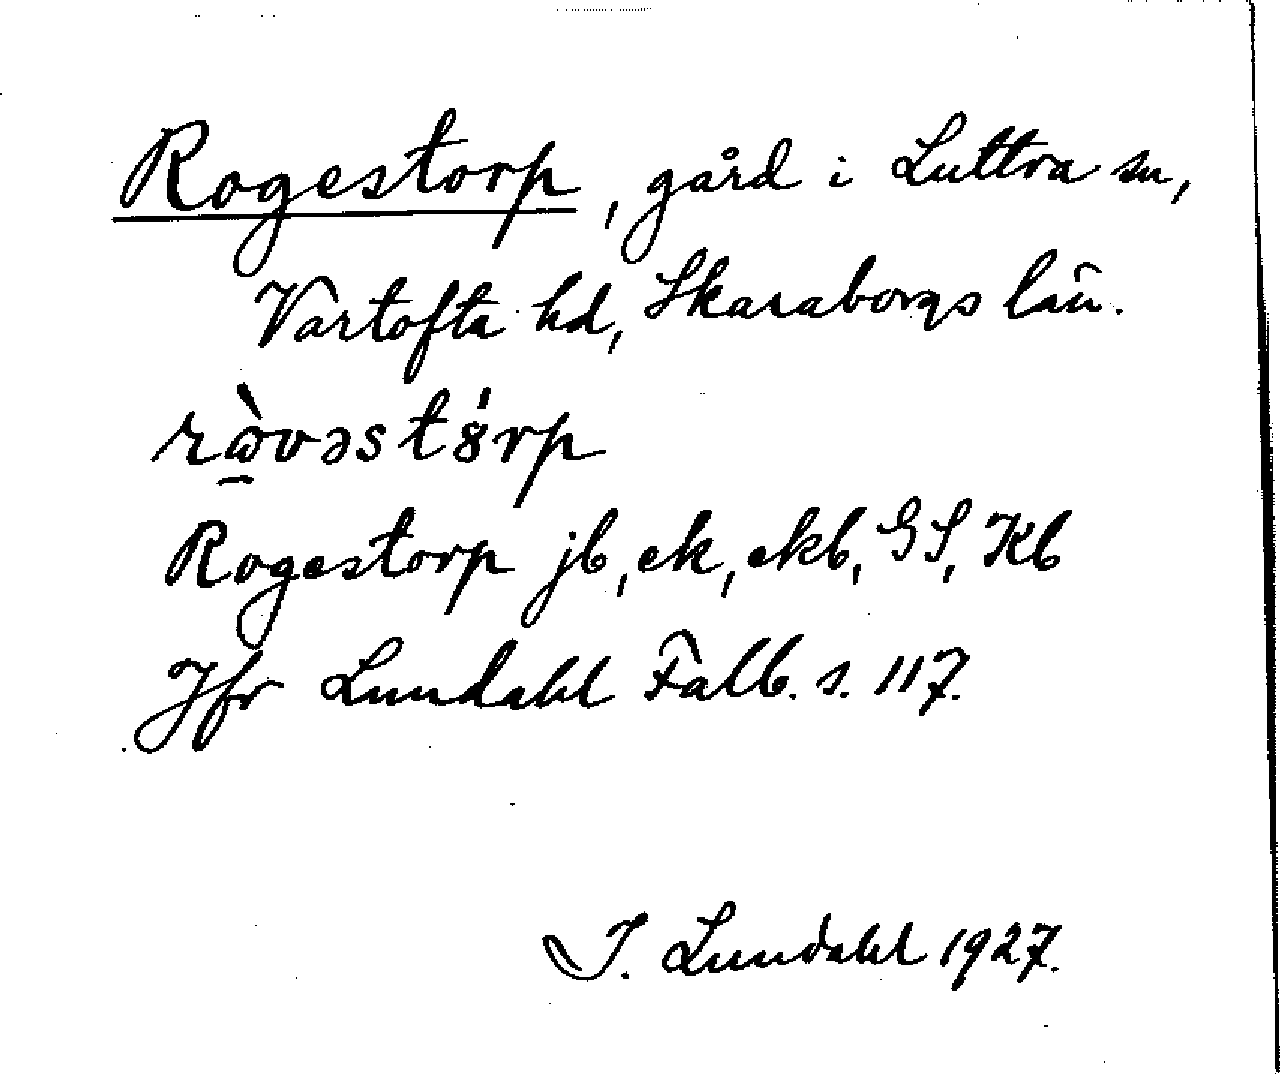 Rogestorp, gård i Luttra sn,
Vartofta hd, Skaraborgs län.
rꞷ̠̀vəst8́rp
Rogestorp jb, ek, ekb, GS, Kb
Jfr Lundahl Falb. s. 117.
I. Lundahl 1927.